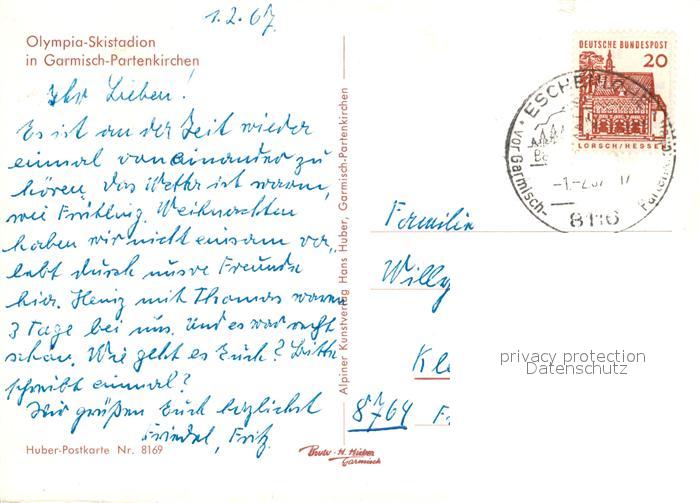 1.2.67
Olympia-Skistadion
in Garmisch-Partenkirchen
Ihr Lieben!
Es ist an der Zeit wieder
einmal voneinander zu
hören, das Wetter ist warm,
wie Frühling. Weihnachten
haben wir nicht einsam ver-
lebt durch unsre Freunde
hier. Heinz mit Thomas waren
3 Tage bei uns. Und es war recht
schön. Wie geht es Euch? Bitte
schreibt einmal?
Wir grüßen Euch herzlichst
Friedel, Fritz
Huber-Postkarte Nr. 8169
Alpiner Kunstverlag Hans Huber, Garmisch-Partenkirchen
Huber
Garmisch
DEUTSCHE BUNDESPOST
20
LORSCH/HESSEN
ESCHENLOHE
vor Garmisch-
Partenk
-1.-2.67 17
8116
Familie
Willy
Kle
8764
privacy protection
Datenschutz